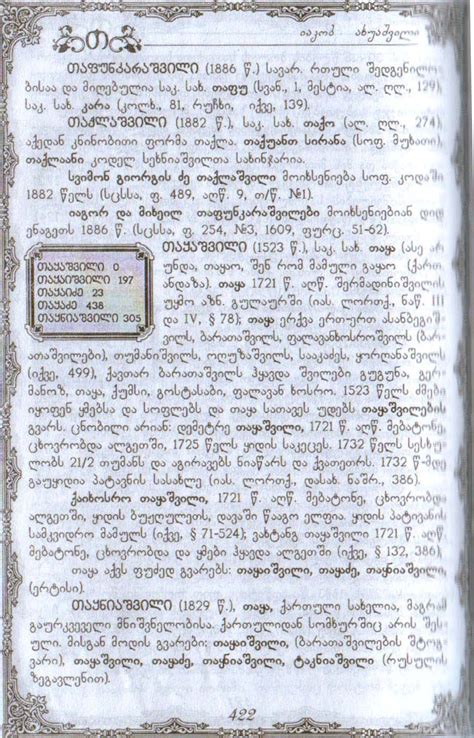 თ
იაკობ ახუაშვილი
თაფუნკარაშვილი (1886 წ.) სავარ. რთული შედგენილო
ბისაა და მიღებულია საკ. სახ. თაფუ (სვან., 1, მესტია, ალ. ღლ., 129)
საკ. სახ. კარა (კოლხ., 81, რუჩხი, იქვე, 139).
თაქლაშვილი (1882 წ.), საკ. სახ. თაქო (ალ. ღლ., 274)
აქედან კნინობითი ფორმა თაქლა. თაქუანთ სირანა (სოფ. მუხათი)
თაქლაანი კოდელ სეხნიაშვილთა სახინჯარია.
სვიმონ გიორგის ძე თაქლაშვილი მოიხსენიება სოფ. კოდაში
1882 წელს (სცსსა, ფ. 489, აღწ. 9, თ/წ. №1).
იაგორ და მიხეილ თაფუნკარაშვილები მოიხსენიებიან დიდ
ენაგეთს 1886 წ. (სცსსა, ფ. 254, №3, 1609, ფურც. 51-62).
თაყაშვილი (1523 წ.), საკ. სახ. თაყა (ასე არ
უნდა, თაყაო, შენ რომ მამული გაყაო (ქართ
ანდაზა). თაყა 1721 წ. აღწ. შერმადინიშვილის
უყმო აზნ. გულაურში (იას. ლორთქ., ნაწ. III
და IV, § 78); თაყა ერქვა ერთ-ერთ ასანბეგიშ
თაყაშვილი 0
თაყაიშვილი 197
თაყაიძე 23
თაყაძე 438
თაყნიაშვილი 305
ვილს, ბარათაშვილს, ფალავანხოსროშვილს (ბარ
ათაშვილები), თუმანიშვილს, ოდუზაშვილს, სააკაძეს, ყორღანაშვილს
(იქვე, 499), ქავთარ ბარათაშვილს ჰყავდა შვილები გუგუნა, გერ
მანოზ, თაყა, ქუმსი, გოსტასაბი, ფალავან ხოსრო. 1523 წელს ძმები
იყოფენ ყმებსა და სოფლებს და თაყა სათავეს უდებს თაყაშვილების
გვარს. ცნობილი არიან: დემეტრე თაყაშვილი, 1721 წ. აღწ. მებატონე,
ცხოვრობდა ალგეთში, 1725 წელს ყიდის საკეცეს. 1732 წელს სესხუ
ლობს 21/2 თუმანს და აგირავებს ნიაწარს და ქვათეთრს. 1732 წ-მდე
გაუყიდია პატავნის სასახლე (იას. ლორთქ., დასახ. ნაშრ., 386).
ქაიხოსრო თაყაშვილი, 1721 წ. აღწ. მებატონე, ცხოვრობდა
ალგეთში, ყიდის ბუჟღულეთს, დავაში წააგო ელფია. ყიდის პატივანის
სამკვიდრო მამულს (იქვე, § 71-524); ვახტანგ თაყაშვილი 1721 წ. აღწ.
მებატონე, ცხოვრობდა და ყმები ჰყავდა ალგეთში (იქვე, § 132, 386)
თაყა აქვს ფუძედ გვარებს: თაყაიშვილი, თაყაძე, თაყნიაშვილი
(ერტისი).
თაყნიაშვილი (1829 წ.), თაყა, ქართული სახელია, მაგრამ
გაურკვეველი მნიშვნელობისა. ქართულიდან სომხურშიც არის შესუ
ული. მისგან მოდის გვარები: თაყაიშვილი, (ბარათაშვილების შტოგ
ვარი), თაყაშვილი, თაყაძე, თაყნიაშვილი, ტაკნიაშვილი (რუსულის
ზეგავლენით).
422